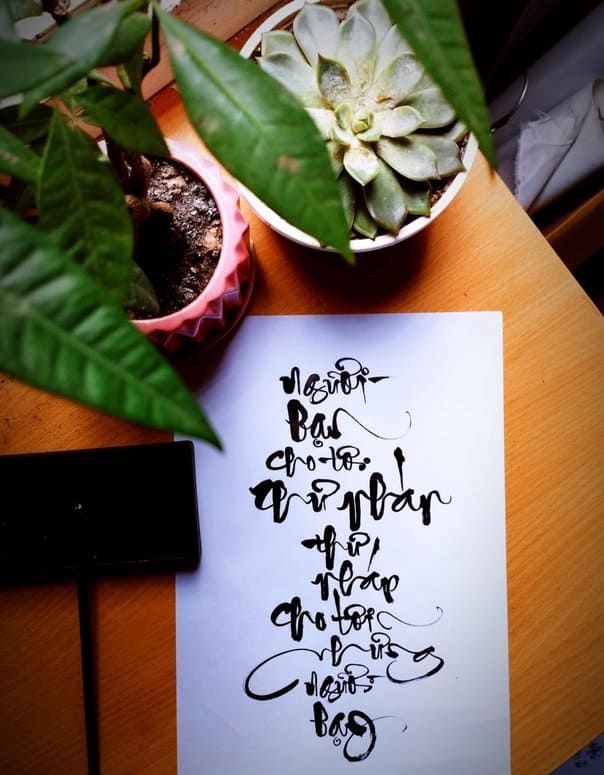 người
Bạn
cho tôi
thư pháp
thư
pháp
cho tôi
những
người
bạn